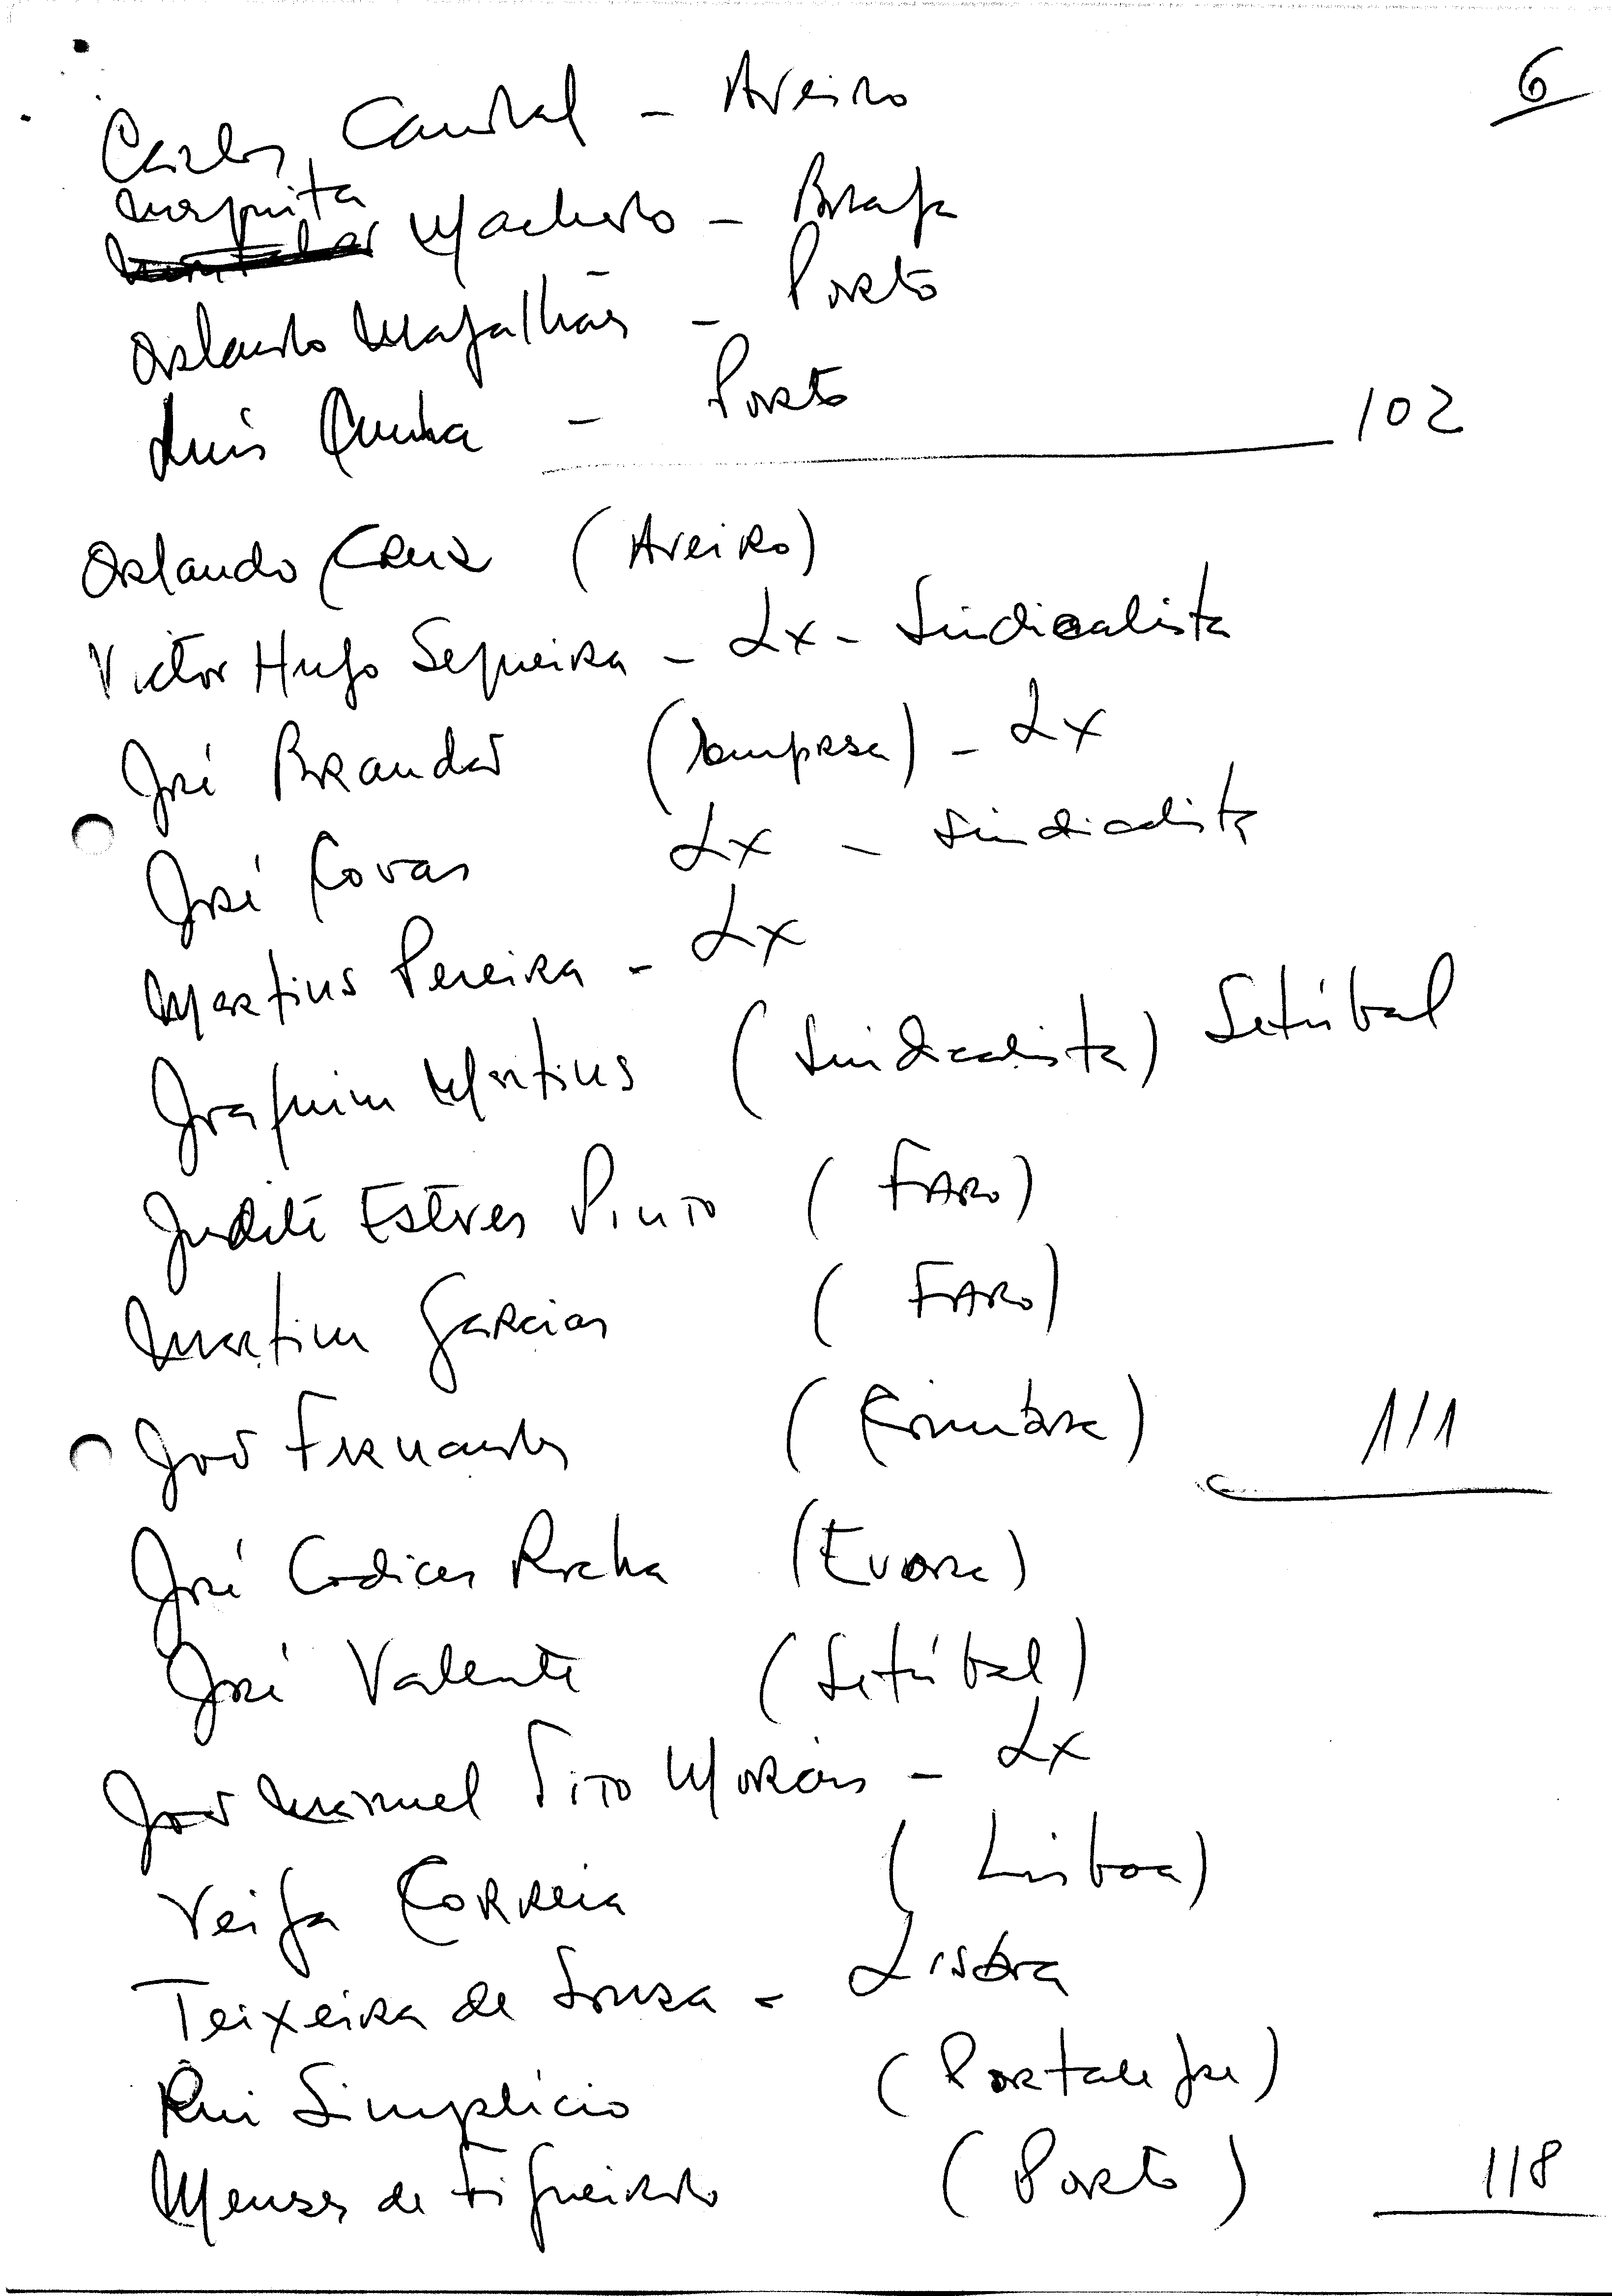 6
Carlos Candal - Aveiro
Mesquita
Machado - Braga
Orlando Magalhães - Porto
Luís Cunha - Porto 102
Orlando Cruz (Aveiro)
Victor Hugo Sequeira - Lx - Sindicalista
José Brandão - Lx
José Covas Lx - sindicalista
Martins Pereira - Lx
Joaquim Martins (Sindicalista) Setúbal
Judite Esteves Pinto (FARO)
Martim Garcias (FARO)
João Fernandes (Coimbra) 111
José Codices Rocha (Evora)
José Valente (Setúbal)
João Manuel Tito Morais - Lx
Veiga Correia (Lisboa)
Teixeira de Sousa - Lisboa
Rui Simplício (Portalegre)
Meneses de Figueiredo (Porto) 118